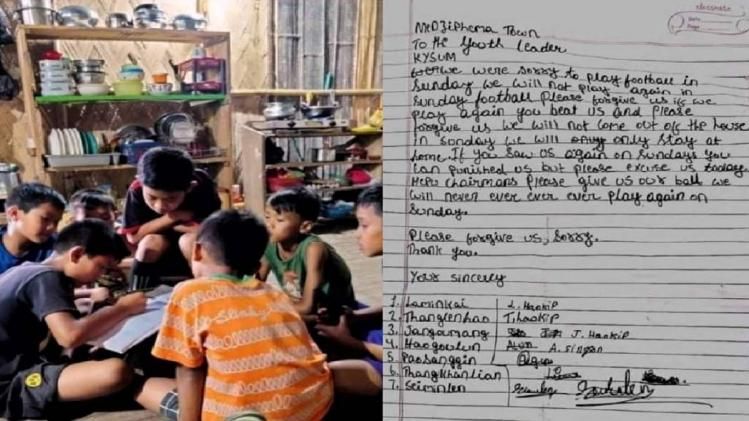 classmate
Date
Page
Medziphema Town
To the Youth Leader
KYSUM
we were sorry to play football in
Sunday we will not play again in
Sunday football Please forgive us if we
play again you beat us and please
forgive us we will not come out off the house
in sunday we will only stay at
home. If you saw us again on sundays you
can punished us but please excuse us today.
chairmans please give us our ball we
will never ever ever ever play again on
sunday.
Please forgive us, sorry.
Thank you.
Your sincerly
1. Laminkai L. Haokip
2. Thanglenhao T. Haokip
3. Jangamang J. Haokip
4. Haogoulun A. Singson
5. Paosanggin
6. Thangkhanlian
7. Seiminlen